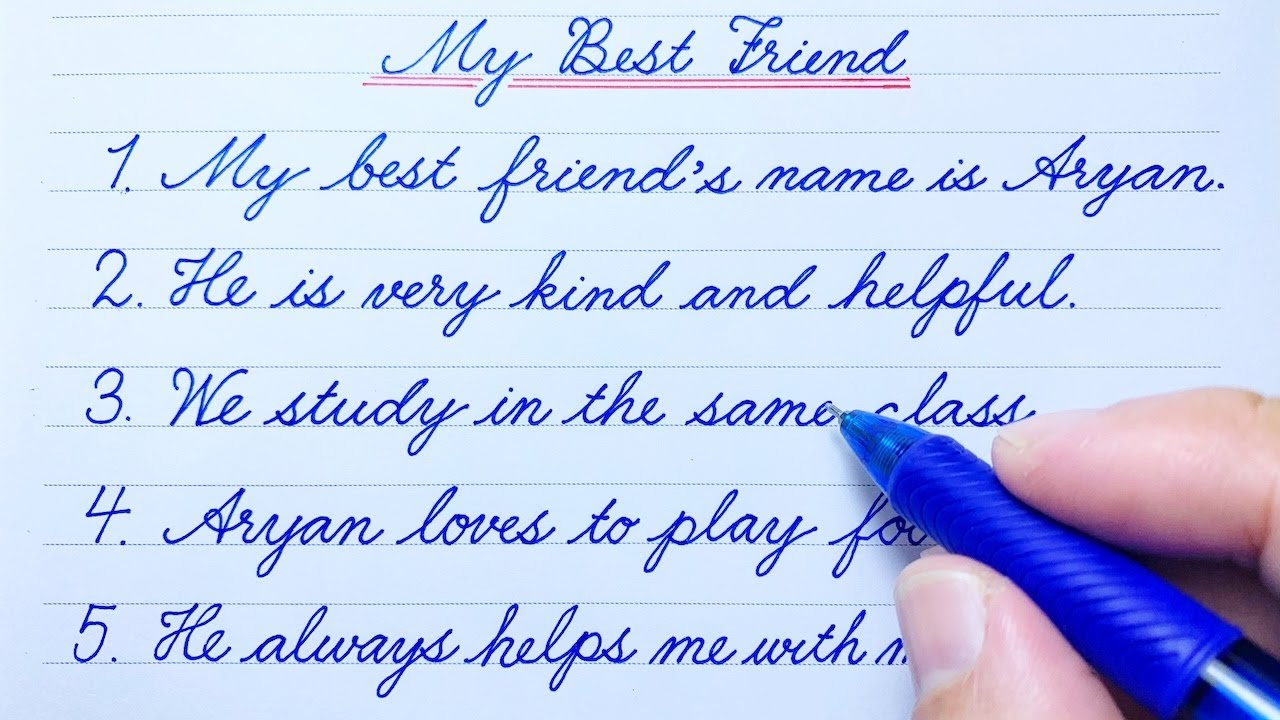 My Best Friend
1. My best friend's name is Aryan.
2. He is very kind and helpful.
3. We study in the same class
4. Aryan loves to play
5. He always helps me with